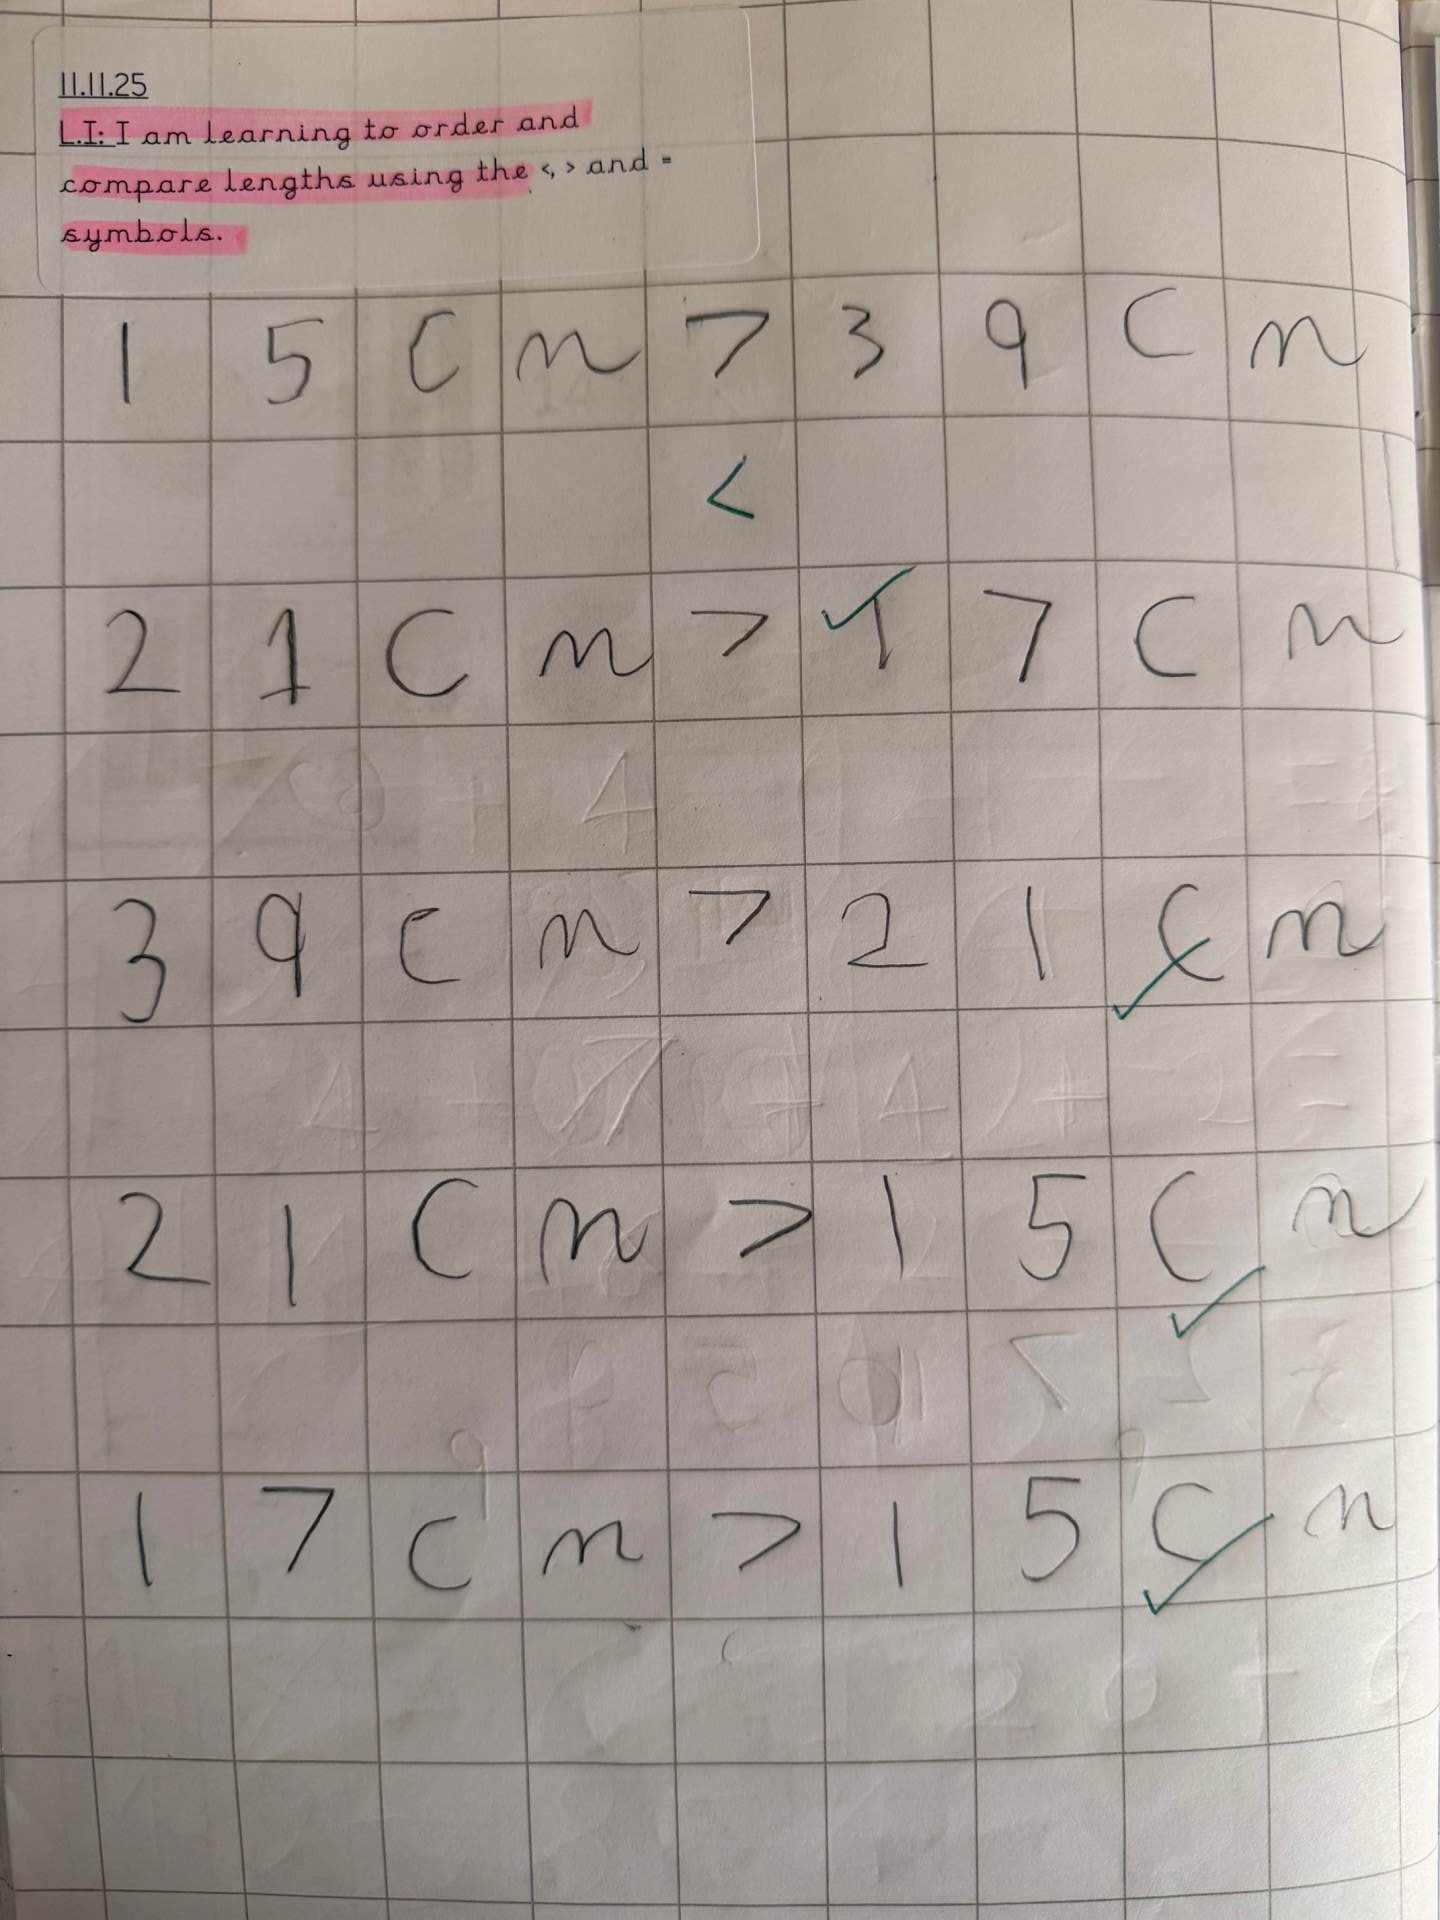 11.11.25
L.I: I am learning to order and
compare lengths using the <, > and =
symbols.
15cm > 39cm
<
21cm > 17cm
39cm > 21cm
21cm > 15cm
17cm > 15cm